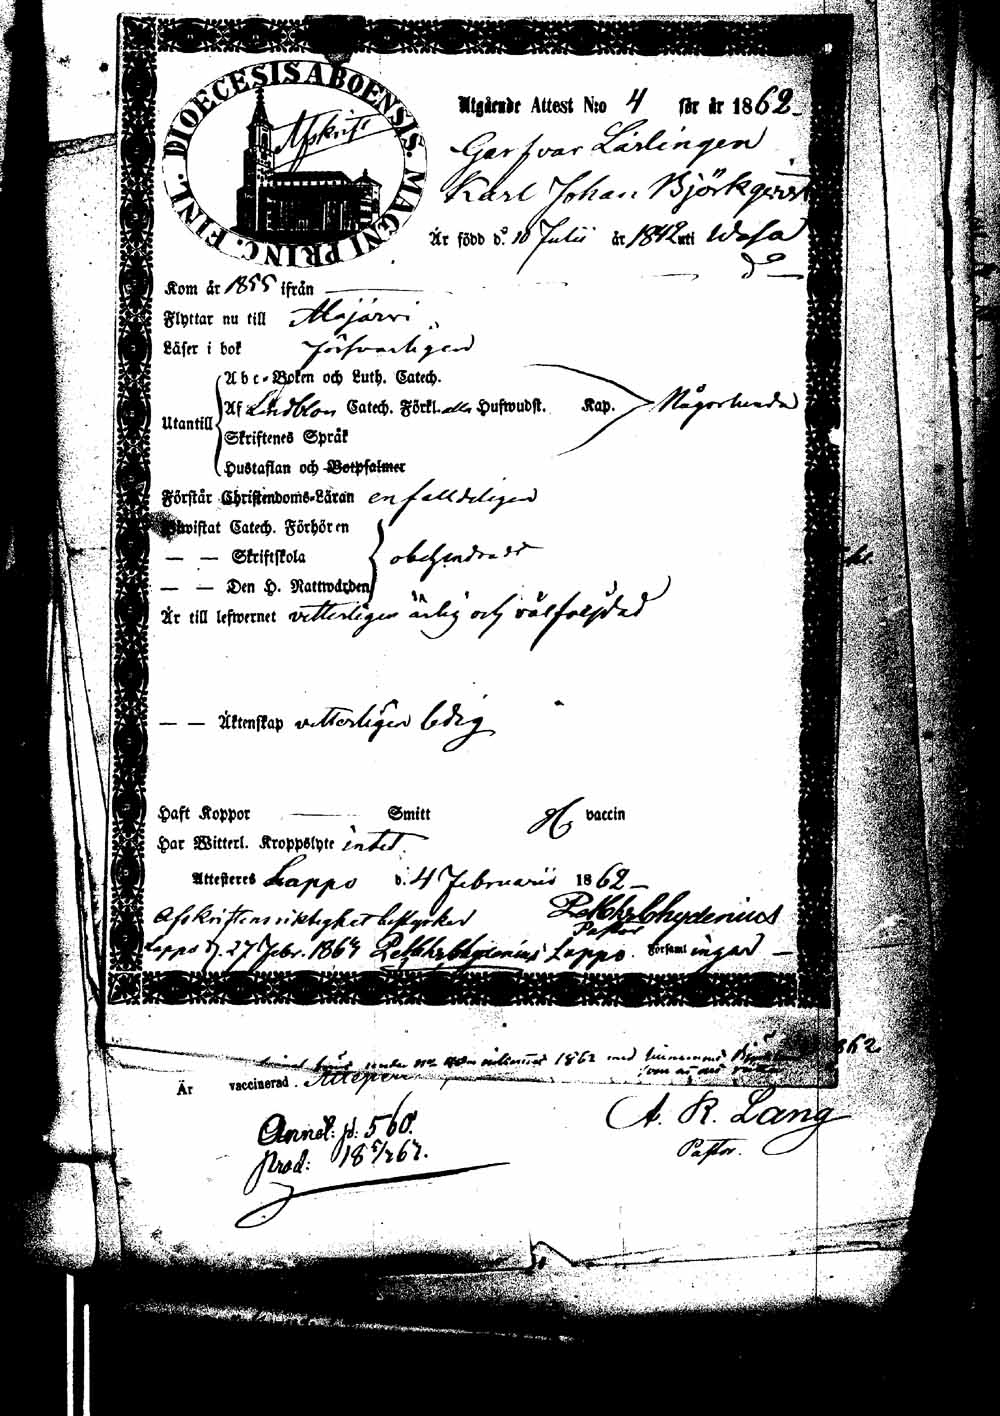 DIOECESIS ABOENSIS. MAGNI PRINC. FINL.
Afskrift
Utgående Attest N:o 4 för år 1862
Garfvar Lärlingen
Karl Johan Björkqvist
Är född d. 10 Julii år 1842 uti Wasa
do
Kom år 1855 ifrån
Flyttar nu till Alajärvi
Läser i bok försvarligen
Abc-Boken och Luth. Catech.
Utantill
Af Lindbloms Catech. Förkl. alla Hufwudst. Kap. Någorlunda
Skriftenes Språk
Hustaflan och Botpsalmer
Förstår Christendoms-Läran enfaldeligen
Biwistat Catech. Förhören
— — Skriftskola obehindradt
— — Den H. Nattwarden
Är till lefwernet vitterligen ärlig och välfräjdad
— — Äktenskap vitterligen ledig
Haft Koppor Smitt vaccin
Har Witterl. Kroppslyte intet
Attesteras Lappo d. 4 Februarii 1862
Chydenius
Pastor
Afskriftens riktighet bestyrker
Lappo d. 27 Febr. 1864 Chydenius Lappo Församlingar
1862 med
1862
Är vaccinerad. Attesterar
A. R. Lang
Pastor.
Annot: p: 560.
Prod: